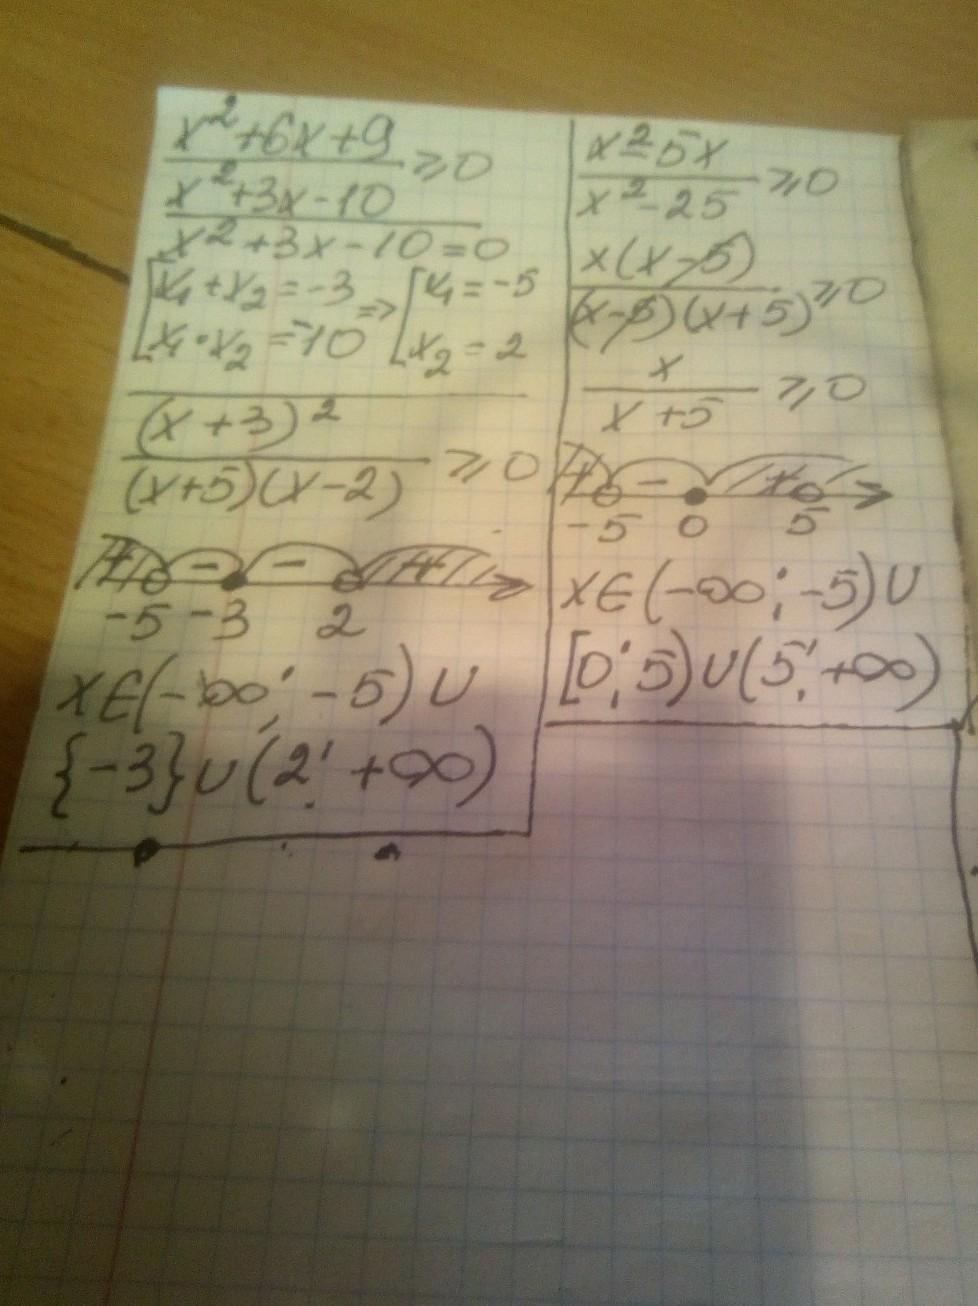 x²+6x+9
x²+3x-10 ≥0
x²+3x-10=0
[x₁+x₂=-3 => [x₁=-5
[x₁·x₂=-10 [x₂=2
(x+3)²
(x+5)(x-2) ≥0
+ - - +
-5 -3 2
x∈(-∞;-5)∪
{-3}∪(2;+∞)
x²-5x
x²-25 ≥0
x(x-5)
(x-5)(x+5) ≥0
x
x+5 ≥0
+ - +
-5 0 5
x∈(-∞;-5)∪
[0;5)∪(5;+∞)